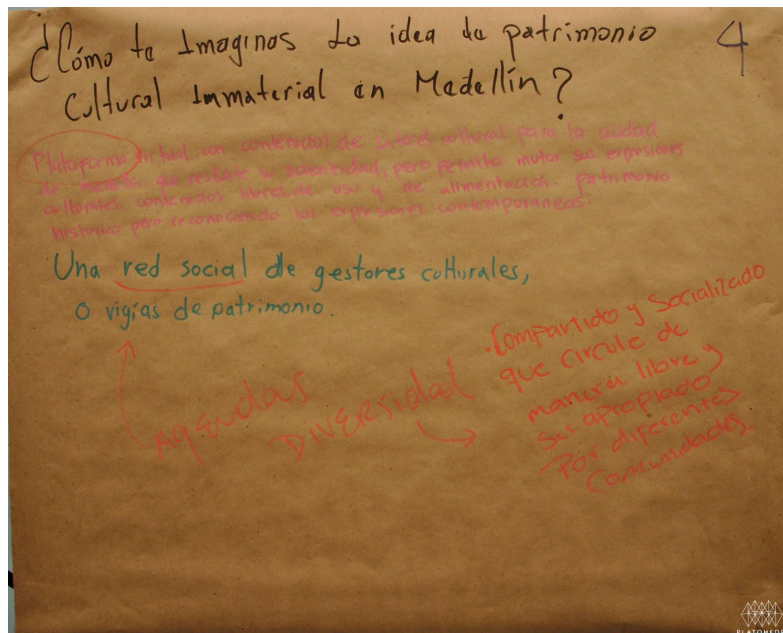 ¿Cómo te Imaginas La idea de patrimonio
Cultural Inmaterial en Medellín?
4
Plataforma virtual con contenidos de interés cultural para la ciudad
de medellin, que la identidad, pero permita mutar sus expresiones
culturales, contenidos libres de uso y de alimentación. Patrimonio
historico pero reconociendo las expresiones contemporaneas.
Una red social de gestores culturales,
o vigías de patrimonio.
Agendas
DIVERSidad
.Compartido y Socializado
que circule de
manera libre y
Sea apropiado
Por diferentes
Comunidades.
PLATOHEDRO